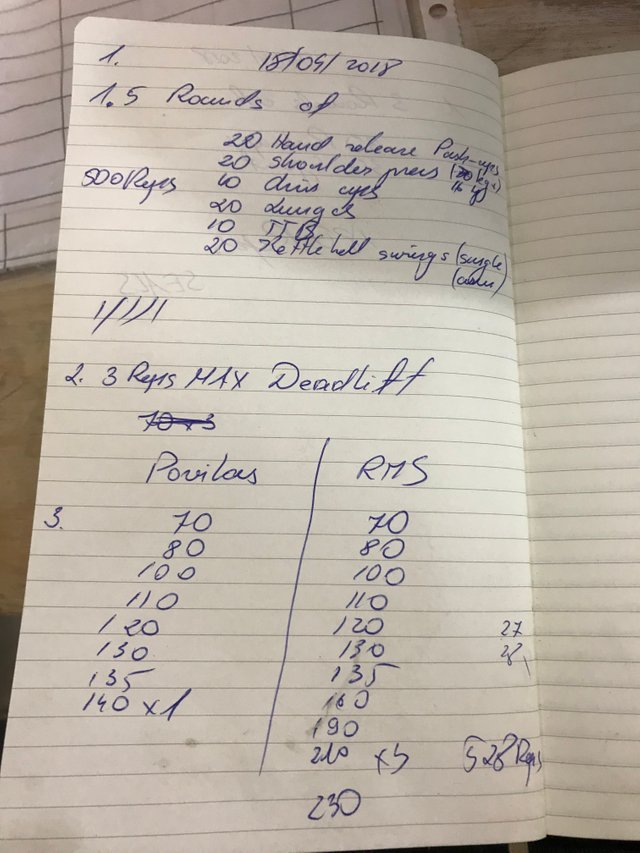 1. 18/04/2018
1. 5 Rounds of
20 Hand release Push-ups
20 shoulder press
500 Reps 10 chin ups
20 Lunges
10 TTB
20 Kettlebell swings (single)
2. 3 Reps MAX Deadlift
70x3
Povilas RMS
3. 70 70
80 80
100 100
110 110
120 120 27
130 130 28
135 135
140 x1 160
190
210 528 Reps
230